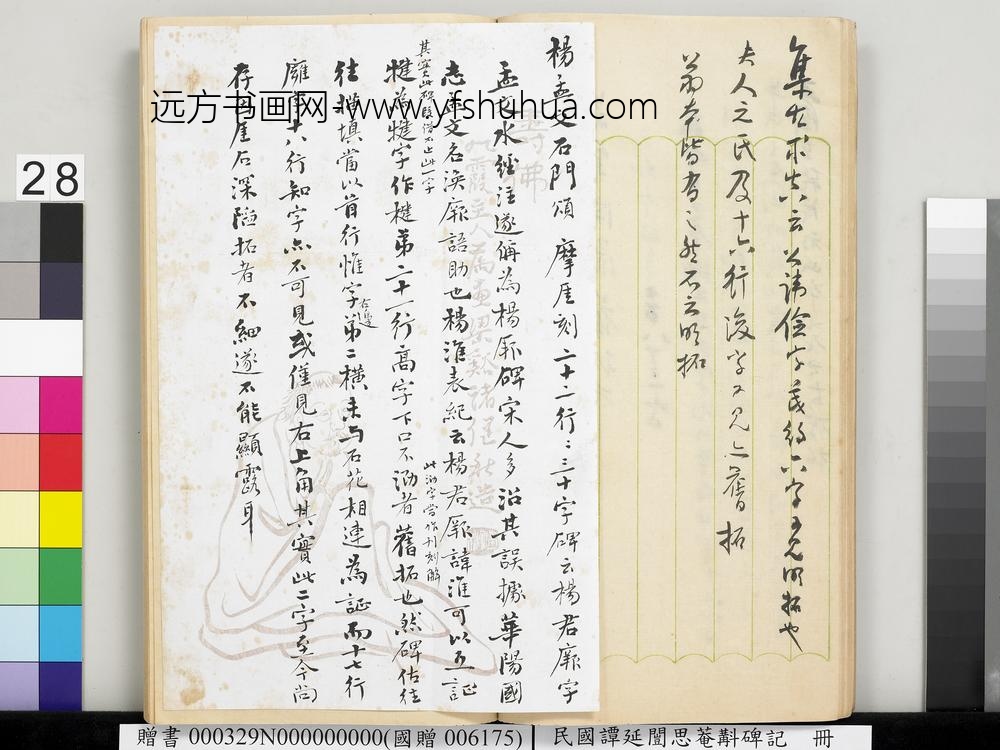 夫人之氏及十六行後字可見之舊拓
翁本皆有之然不云明拓
楊孟文石門頌 摩崖刻二十二行二三十字碑云楊君厥字
孟文水經注遂稱為楊厥碑宋人多沿其誤據華陽國
志孟文名渙厥語助也楊淮表紀云楊君厥諱淮可以互證
其實此碑
楗為楗字作楗第二十一行高字下口不泐者舊拓也然碑估往
此泐字當作刊刻解
往描填當以首行惟字第二橫未與石花相連為証而十七行
右邊
十八行知字亦不可見或僅見右上角其實此二字至今尚
存因崖石深隘拓者不細遂不能顯露耳
壽佛
远方书画网-www.yfshuhua.com
28
贈書 000329N000000000(國贈 006175) 民國譚延闓思菴斠碑記 冊